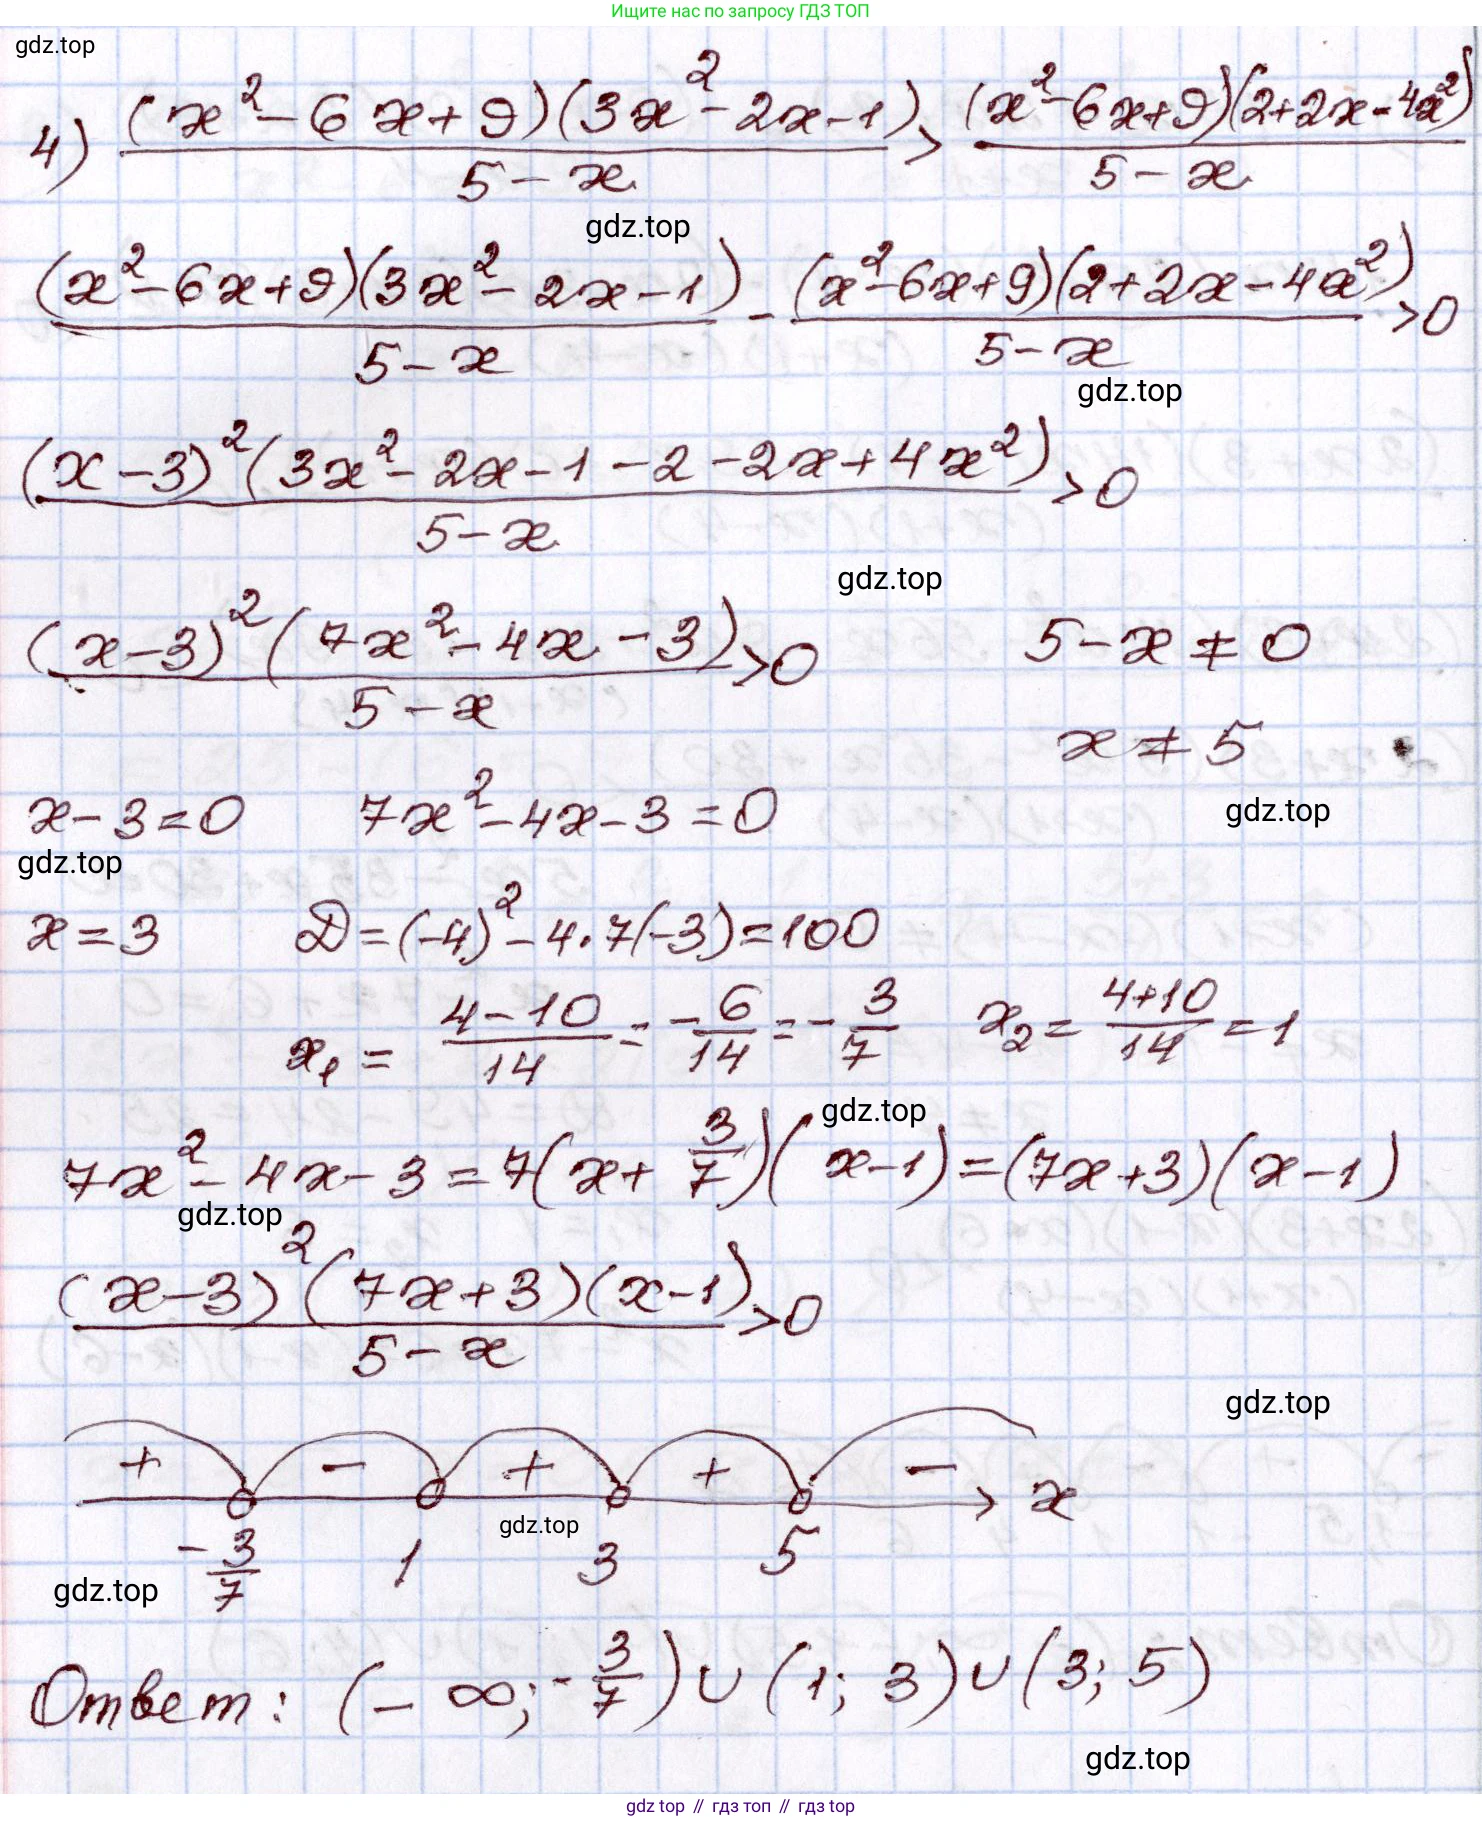 Ищите нас по запросу ГДЗ ТОП
gdz.top
4) (x² - 6x + 9)(3x² - 2x - 1) / (5 - x) > (x² - 6x + 9)(2 + 2x - 4x²) / (5 - x)
gdz.top
(x² - 6x + 9)(3x² - 2x - 1) / (5 - x) - (x² - 6x + 9)(2 + 2x - 4x²) / (5 - x) > 0
gdz.top
(x - 3)² (3x² - 2x - 1 - 2 - 2x + 4x²) / (5 - x) > 0
gdz.top
(x - 3)² (7x² - 4x - 3) / (5 - x) > 0 5 - x ≠ 0
x ≠ 5
x - 3 = 0 7x² - 4x - 3 = 0
gdz.top
gdz.top
x = 3 D = (-4)² - 4 · 7(-3) = 100
x₁ = (4 - 10)/14 = -6/14 = -3/7 x₂ = (4 + 10)/14 = 1
gdz.top
7x² - 4x - 3 = 7(x + 3/7)(x - 1) = (7x + 3)(x - 1)
gdz.top
(x - 3)² (7x + 3)(x - 1) / (5 - x) > 0
gdz.top
+ - + + - x
gdz.top
-3/7 1 3 5
gdz.top
Ответ: (-∞; -3/7) ∪ (1; 3) ∪ (3; 5)
gdz.top
gdz top // гдз топ // gdz.top